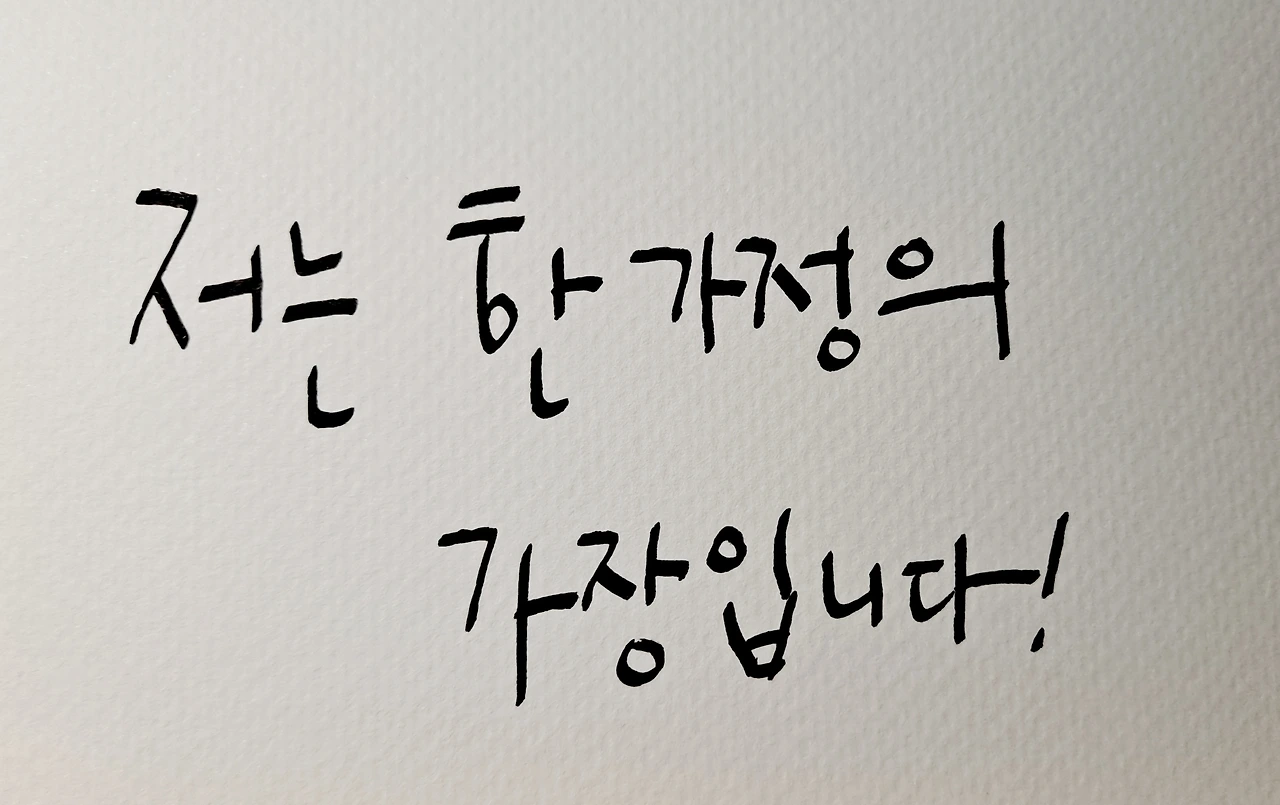 저는 한 가정의
가장입니다!